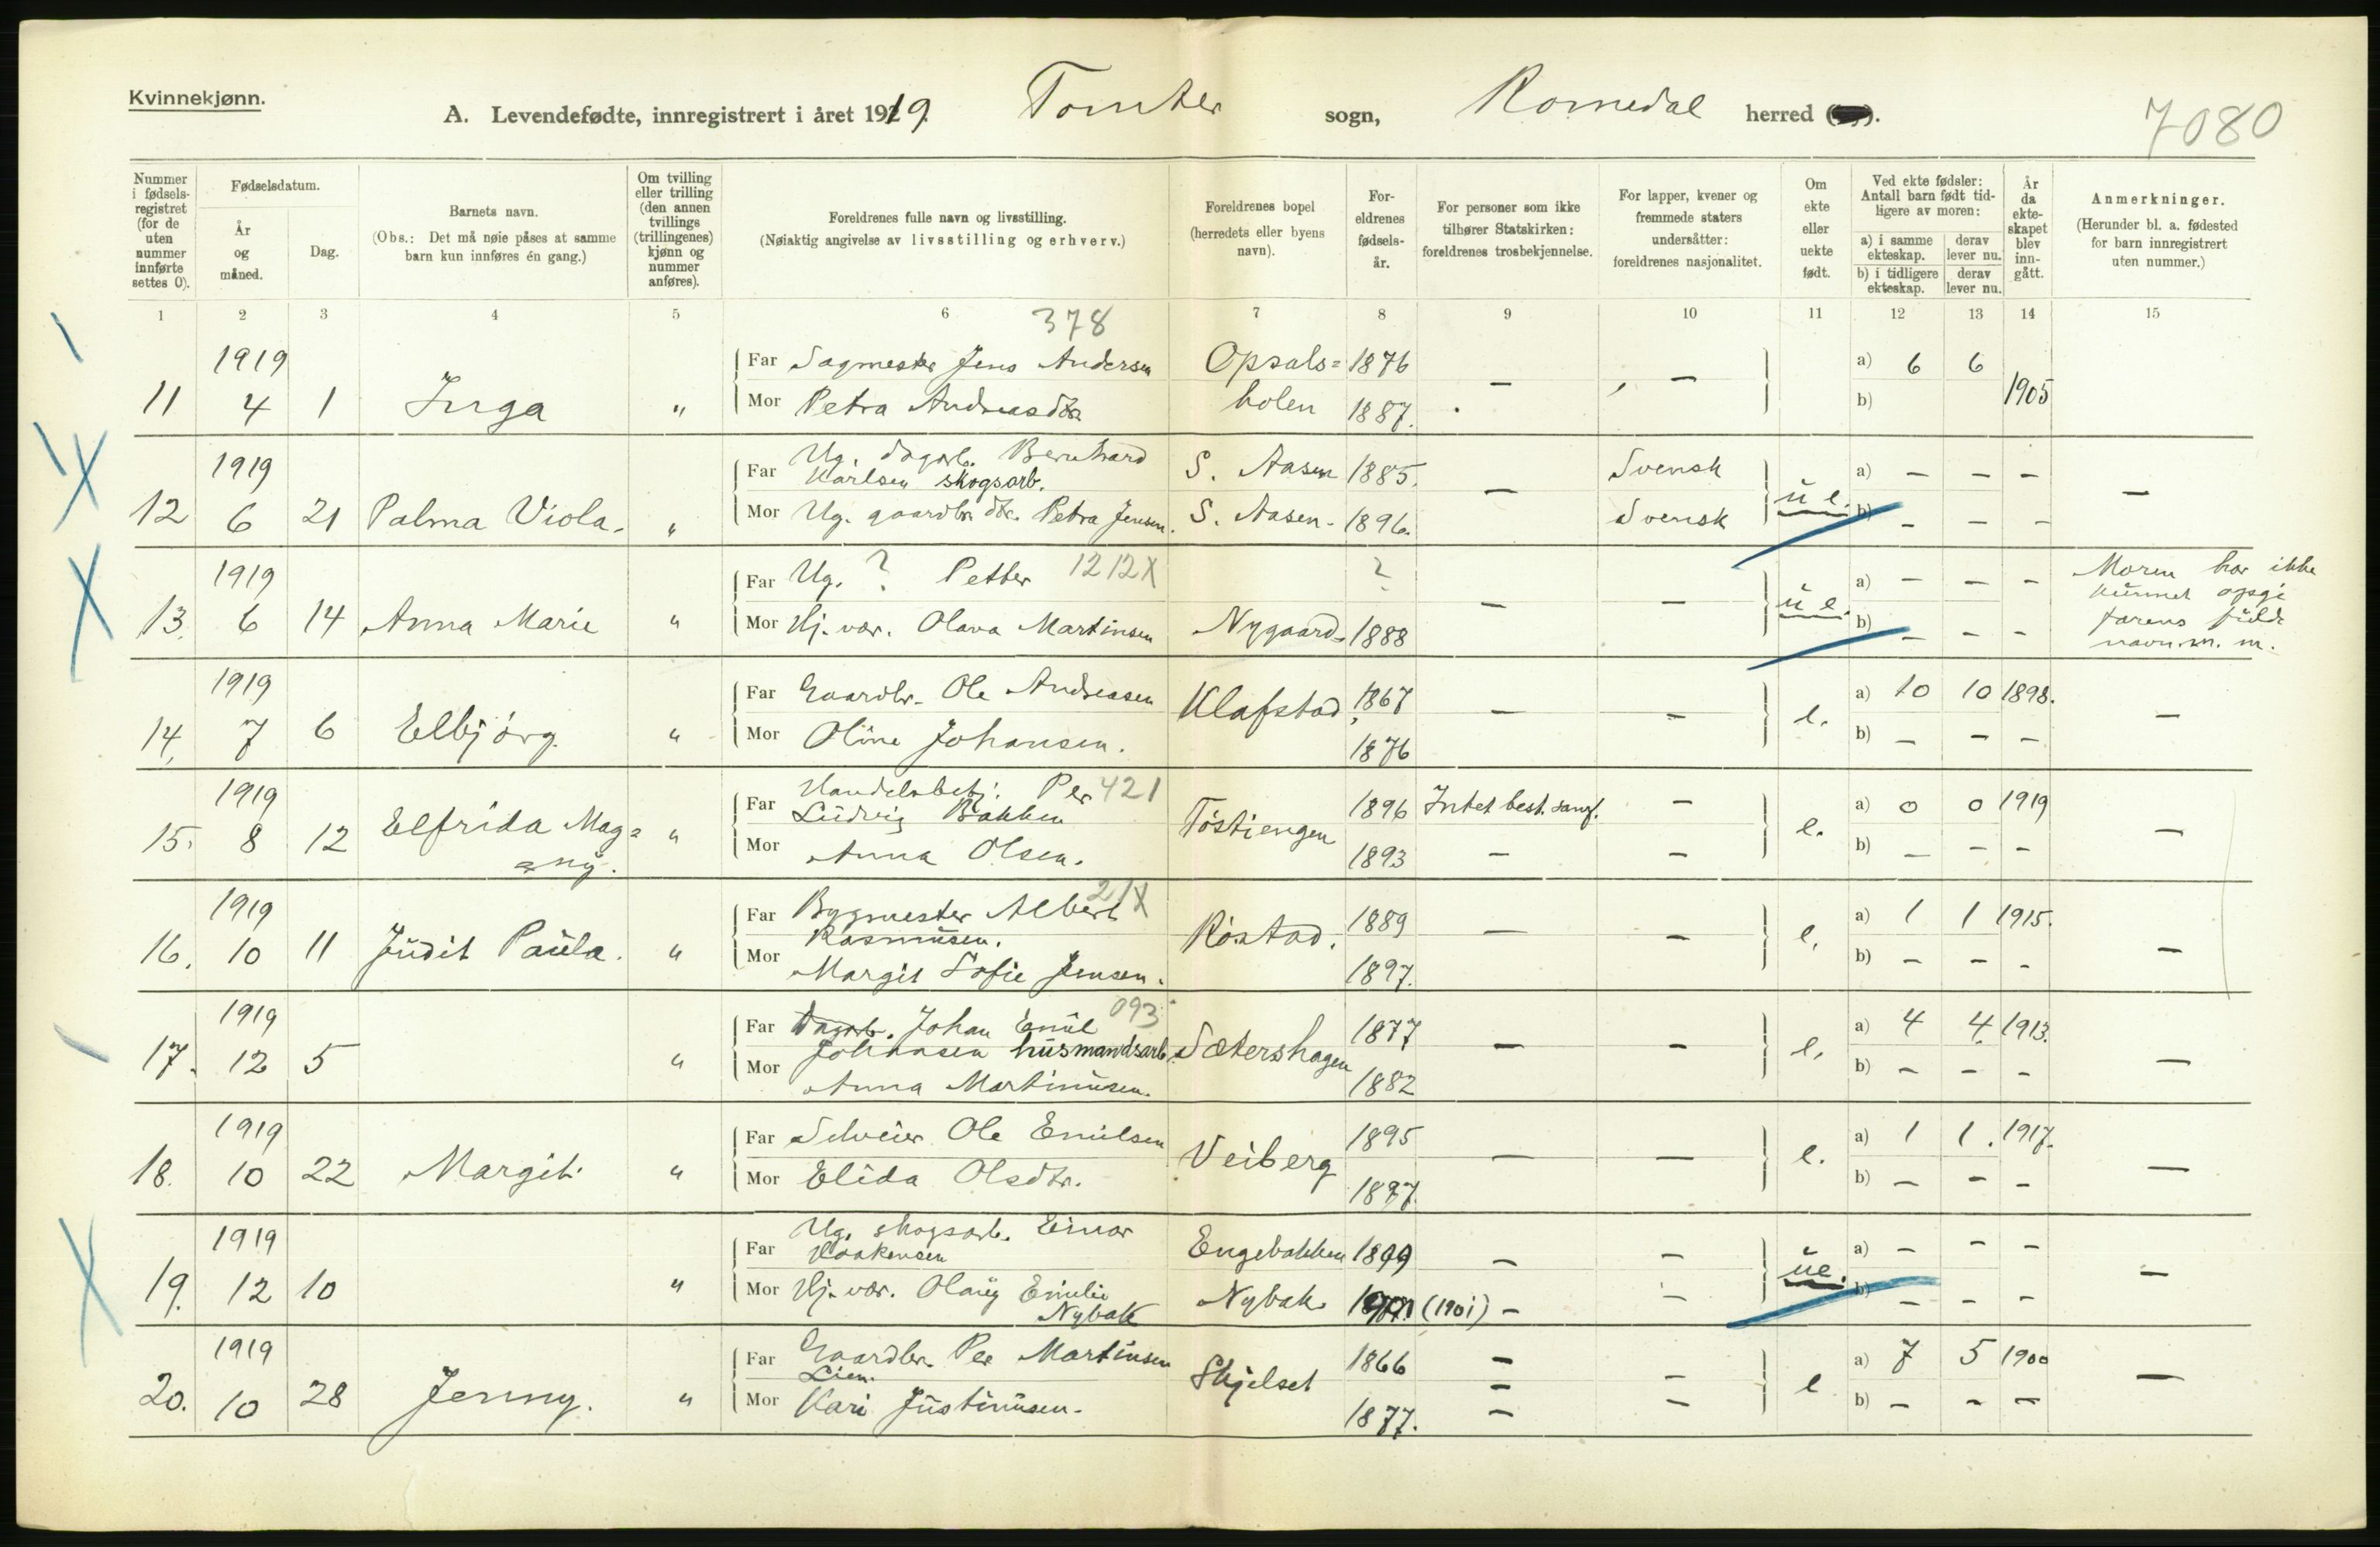 Kvinnekjønn.
A. Levendefødte, innregistrert i året 1919. Tomter sogn, Romedal herred
7080
Nummer i fødsels-registret (for de uten nummer innførte settes 0).
Fødselsdatum.
År og måned.
Dag.
Barnets navn.
(Obs.: Det må nøie påses at samme barn kun innføres én gang.)
Om tvilling eller trilling (den annen tvillings (trillingenes) kjønn og nummer anføres).
Foreldrenes fulle navn og livsstilling.
(Nøiaktig angivelse av livsstilling og erhverv.)
Foreldrenes bopel (herredets eller byens navn).
For-eldrenes fødsels-år.
For personer som ikke tilhører Statskirken: foreldrenes trosbekjennelse.
For lapper, kvener og fremmede staters undersåtter: foreldrenes nasjonalitet.
Om ekte eller uekte født.
Ved ekte fødsler: Antall barn født tid-ligere av moren:
a) i samme ekteskap. derav lever nu.
b) i tidligere ekteskap. derav lever nu.
År da ekte-skapet blev inn-gått.
Anmerkninger.
(Herunder bl. a. fødested for barn innregistrert uten nummer.)
1 2 3 4 5 6 7 8 9 10 11 12 13 14 15
378
1919 Far Sagmester Jens Andersen Opsals= 1876 – – a) 6 6
11 4 1 Inga " Mor Petra Andreasdtr. holen 1887. b) 1905
1919 Far Ug. dagarb. Bernhard S. Aasen 1885. Svensk a) – – –
Karlsen skogsarb. –
12 6 21 Palma Viola. " Mor Ug. gaardbr. dtr. Petra Jensen. S. Aasen. 1896. Svensk u e. b) – – –
1919 Far Ug. ? Petter 1212X ? a) – – – Moren har ikke
kunnet opgi
13. 6 14 Anna Marie " Mor Hj. vær. Olava Martinsen Nygaard. 1888 – – u e. b) – – – farens fulde
navn m. m.
1919 Far Gaardbr. Ole Andreasen Klafstad 1867 – – e. a) 10 10 1898.
14, 7 6 Elbjörg. " Mor Oline Johansen. 1876 b) – – – –
1919 Far Handelsbetj. Per 421
Ludvig Bakken Töstiengen 1896 Intet best. samf. – a) 0 0 1919
15. 8 12 Elfrida Mag= " Mor Anna Olsen. 1893 – – e. b) – – – –
=ny.
1919 Far Bygmester Albert 21X
Rasmusen. Röstad. 1889 – – a) 1 1 1915.
16. 10 11 Judit Paula. " Mor Margit Sofie Jensen. 1897. e. b) – – – –
1919 Far Dagarb. Johan Emil 093
Johansen husmandsarb. Sætershagen 1877 – – a) 4 4. 1913.
17. 12 5 " Mor Anna Martinusen. 1882 e. b) – – – –
1919 Far Selveier Ole Emilsen Veiberg 1895 – – a) 1 1. 1917.
18. 10 22 Margit. " Mor Elida Olsdtr. 1897. e. b) – – – –
1919 Far Ug. skogsarb. Einar
Haakensen Engebakken 1899 – – a) – – –
19. 12 10 " Mor Hj. vær. Olaug Emilie Nybak. (1901) – – ue. b) – – – –
Nybak
1919 Far Gaardbr. Per Martinsen
Lien. Skjelset 1866 – – a) 7 5 1900
20. 10 28 Jenny. " Mor Kari Justinusen. 1877. – – e b) – – – –